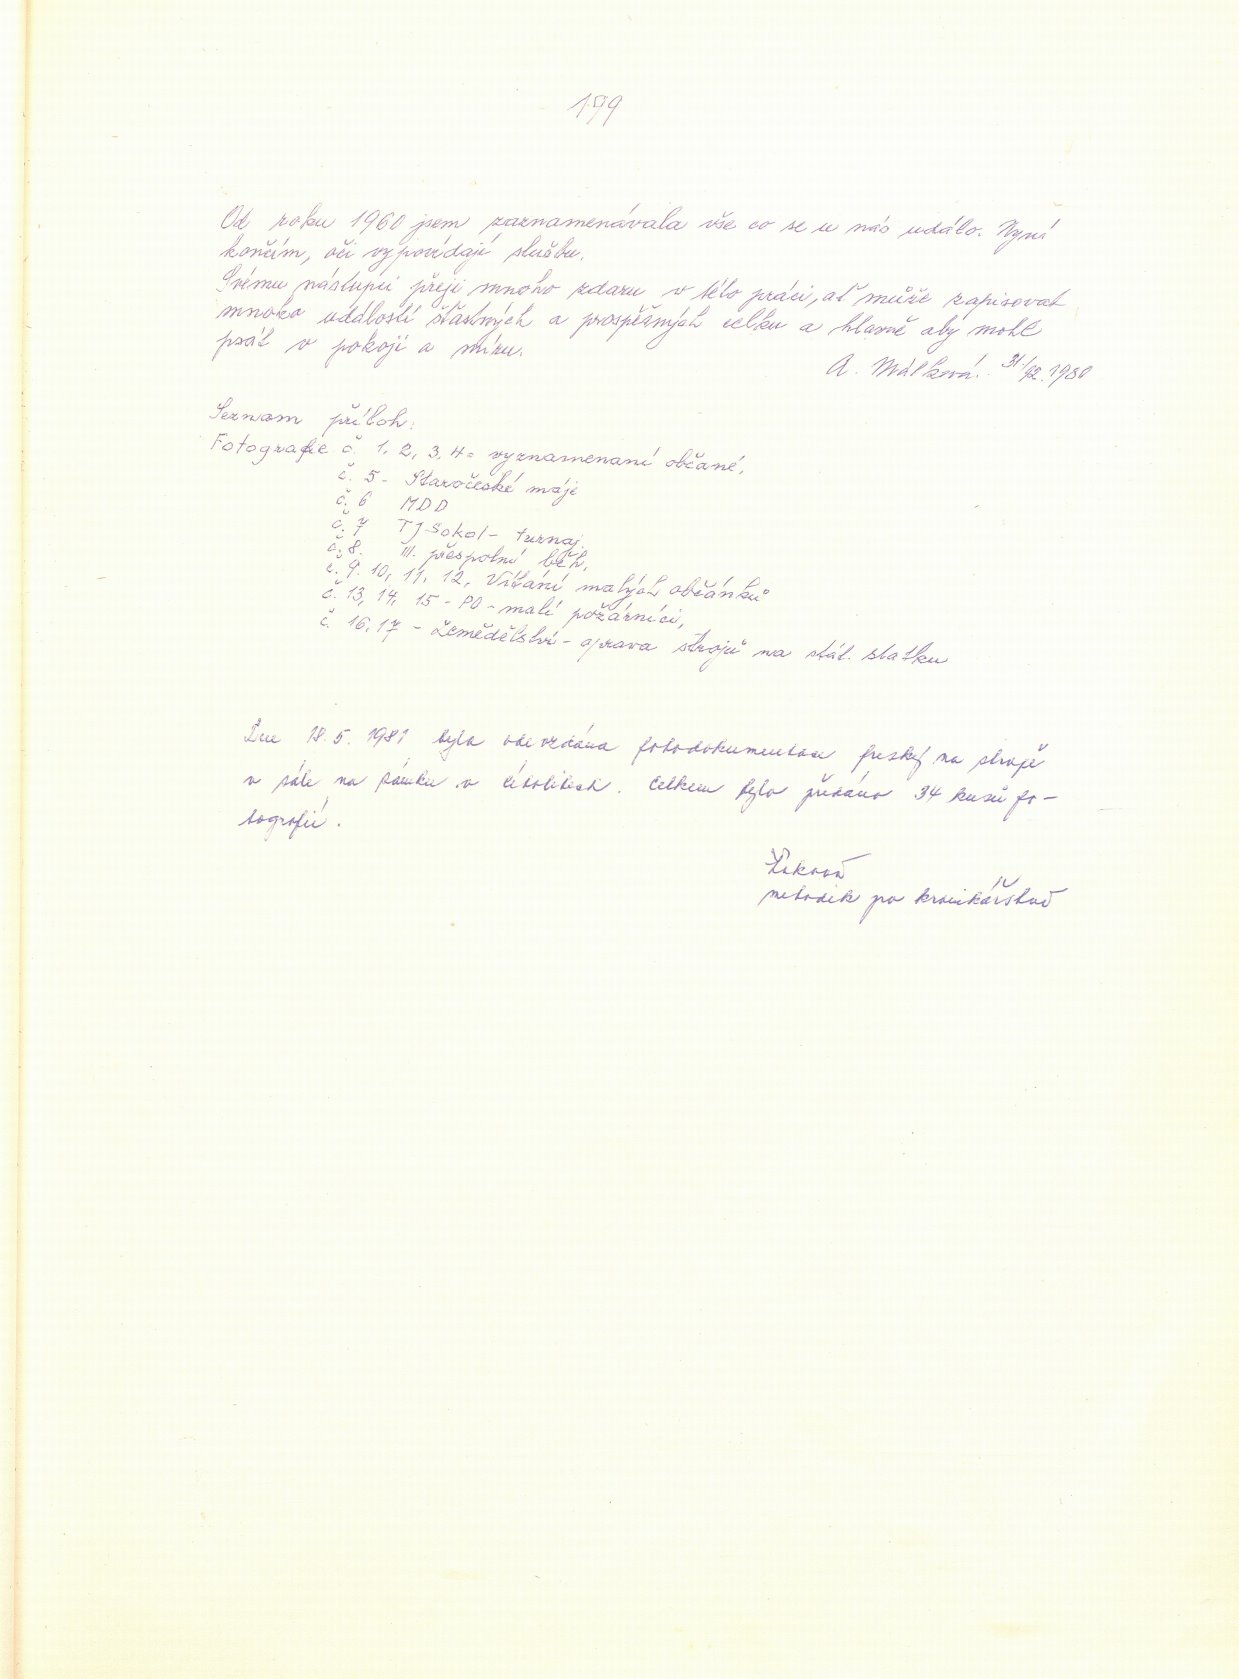 199
Od roku 1960 jsem zaznamenávala vše co se u nás událo. Nyní
končím, oči vypovídají službu.
Svému nástupci přeji mnoho zdaru v této práci, ať může zapisovat
mnoho událostí šťastných a prospěšných celku a hlavně aby mohl
psát v pokoji a míru.
A. Málková. 31/12. 1980
Seznam příloh:
Fotografie č. 1, 2, 3, 4 = vyznamenaní občané,
č. 5 - Staročeské máje
č. 6 MDD
č. 7 TJ Sokol - turnaj.
č. 8. III. přespolní běh,
č. 9. 10, 11, 12, Vítání malých občánků
č. 13, 14, 15 - PO - malí požárníci,
č. 16, 17 - Zemědělství - oprava strojů na stát. statku
Dne 18. 5. 1981 byla odevzdána fotodokumentace fresky na stropě
v sále na zámku v Cítolibech. Celkem bylo předáno 34 kusů fo-
tografií.
metodik po kronikářství